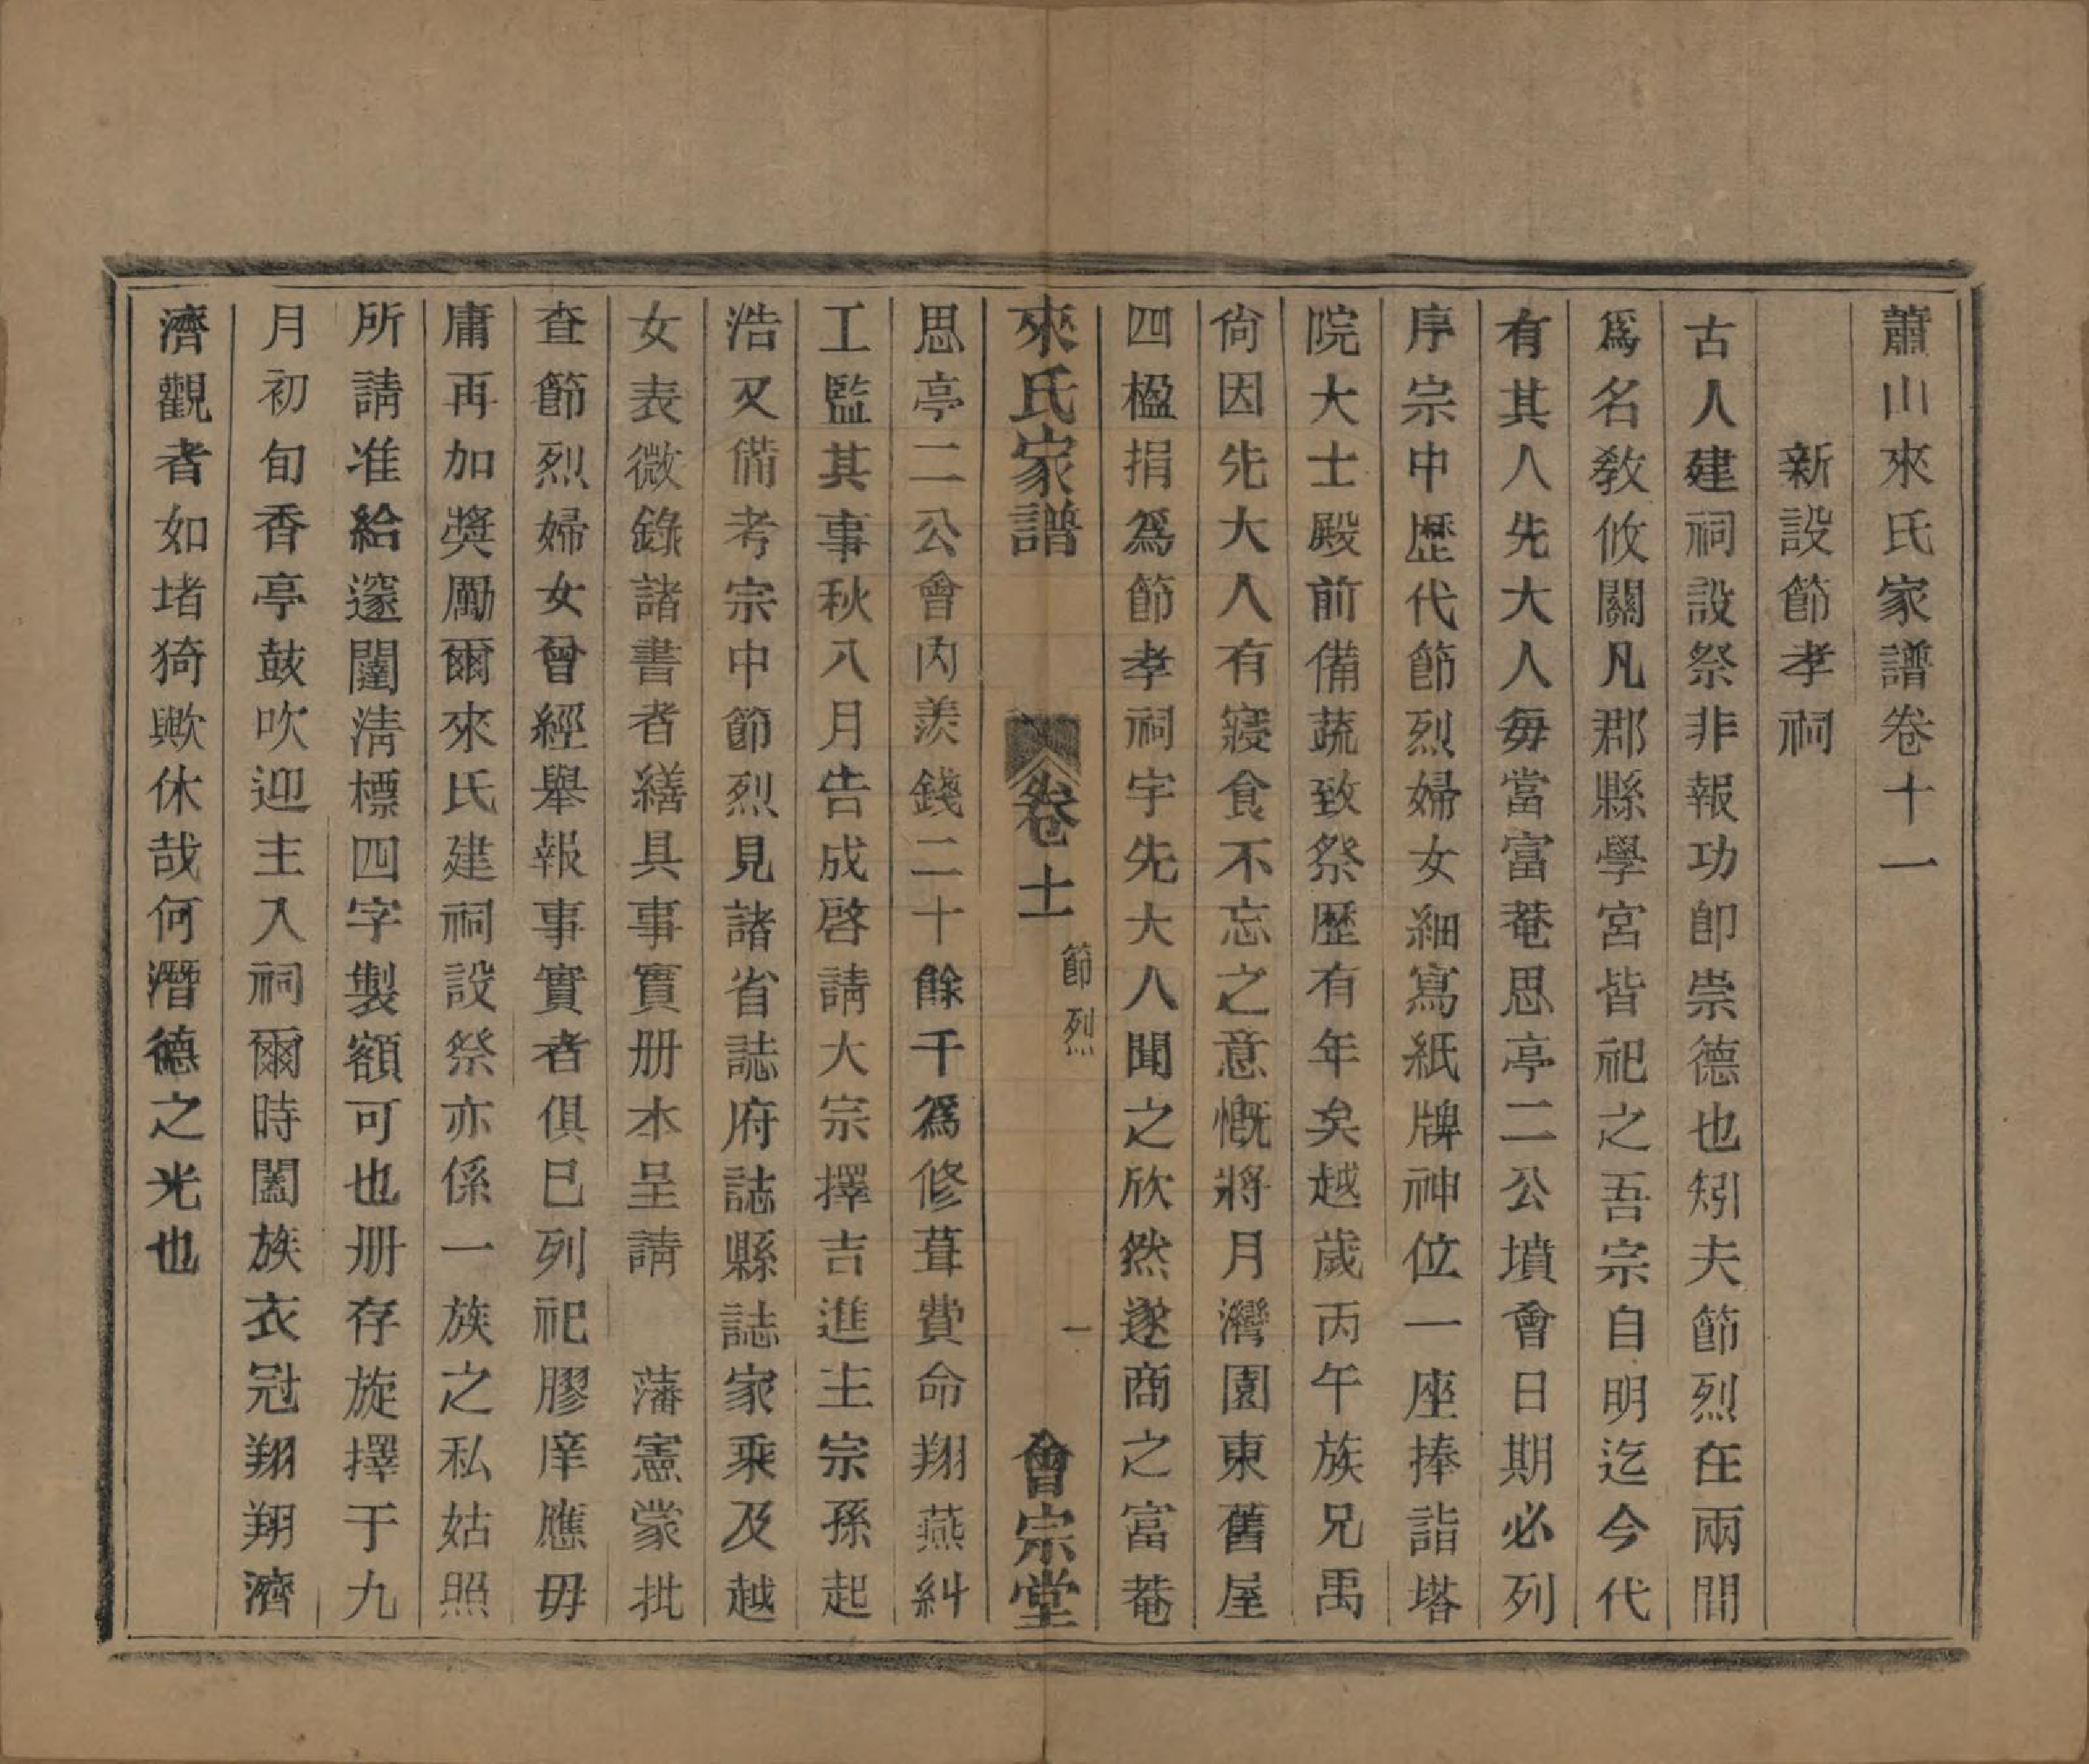 蕭山來氏家譜卷十一
新設節孝祠
古人建祠設祭非報功卽崇德也矧夫節烈在兩間
爲名敎攸關凡郡縣學宮皆祀之吾宗自明迄今代
有其人先大人每當富菴思亭二公墳會日期必列
序宗中歷代節烈婦女細寫紙牌神位一座捧詣塔
院大士殿前備蔬致祭歷有年矣越歲丙午族兄禹
尙因先大人有寢食不忘之意慨將月灣園東舊屋
四楹捐爲節孝祠宇先大人聞之欣然遂商之富菴
來氏家譜 卷十一 節烈 一 會宗堂
思亭二公會內羨錢二十餘千爲修葺費命翔燕糾
工監其事秋八月告成啓請大宗擇吉進主宗孫起
浩又備考宗中節烈見諸省誌府誌縣誌家乘及越
女表微錄諸書者繕具事實册本呈請 藩憲蒙批
查節烈婦女曾經舉報事實者俱已列祀膠庠應毋
庸再加獎勵爾來氏建祠設祭亦係一族之私姑照
所請准給邃闥淸標四字製額可也册存旋擇于九
月初旬香亭鼓吹迎主入祠爾時闔族衣冠翔翔濟
濟觀者如堵猗歟休哉何潛德之光也